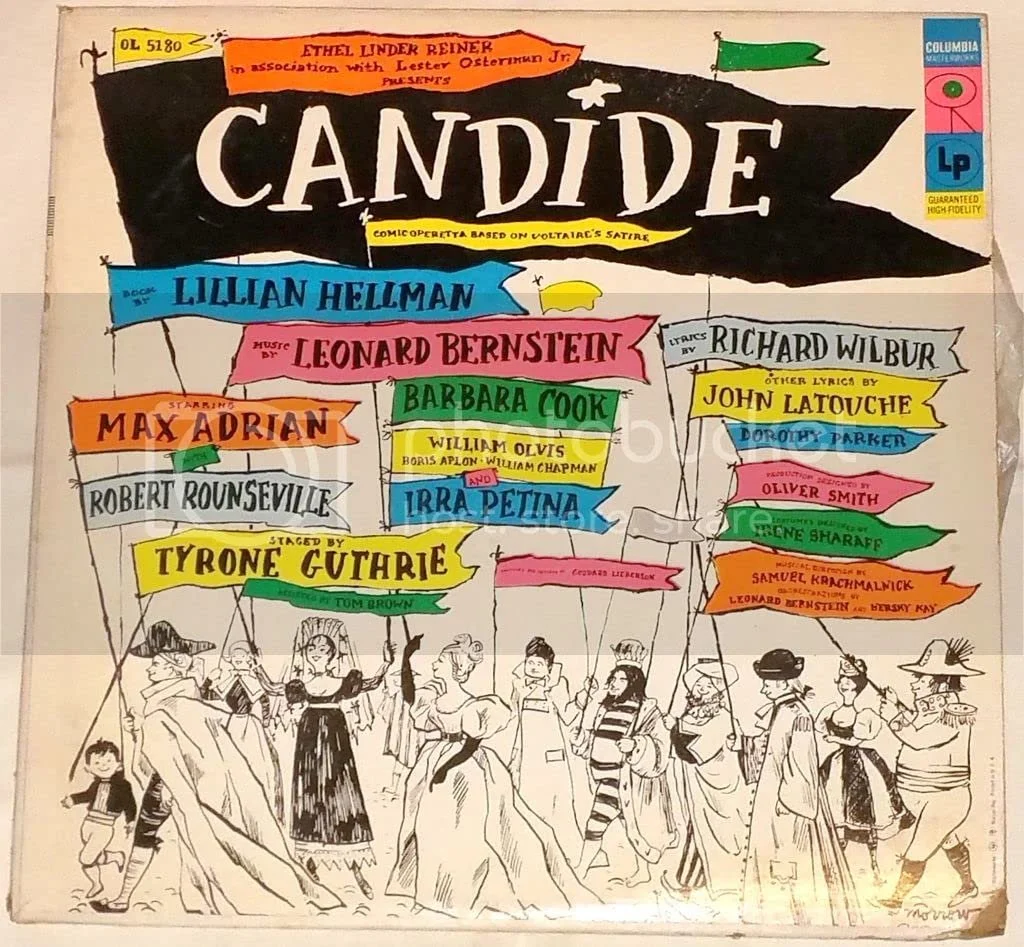 OL 5180
ETHEL LINDER REINER
in association with Lester Osterman Jr.
PRESENTS
COLUMBIA
MASTERWORKS
CANDIDE
Lp
GUARANTEED
HIGH-FIDELITY
COMIC OPERETTA BASED ON VOLTAIRE'S SATIRE
BOOK BY LILLIAN HELLMAN
MUSIC BY LEONARD BERNSTEIN
LYRICS BY RICHARD WILBUR
OTHER LYRICS BY
JOHN LATOUCHE
DOROTHY PARKER
STARRING
MAX ADRIAN
BARBARA COOK
WITH
WILLIAM OLVIS
BORIS APLON · WILLIAM CHAPMAN
ROBERT ROUNSEVILLE
AND
IRRA PETINA
PRODUCTION DESIGNED BY
OLIVER SMITH
COSTUMES DESIGNED BY
IRENE SHARAFF
STAGED BY
TYRONE GUTHRIE
ASSISTED BY TOM BROWN
GODDARD LIEBERSON
MUSICAL DIRECTION BY
SAMUEL KRACHMALNICK
ORCHESTRATIONS BY
LEONARD BERNSTEIN AND HERSHY KAY
photobucket
host. store. share.
morrow